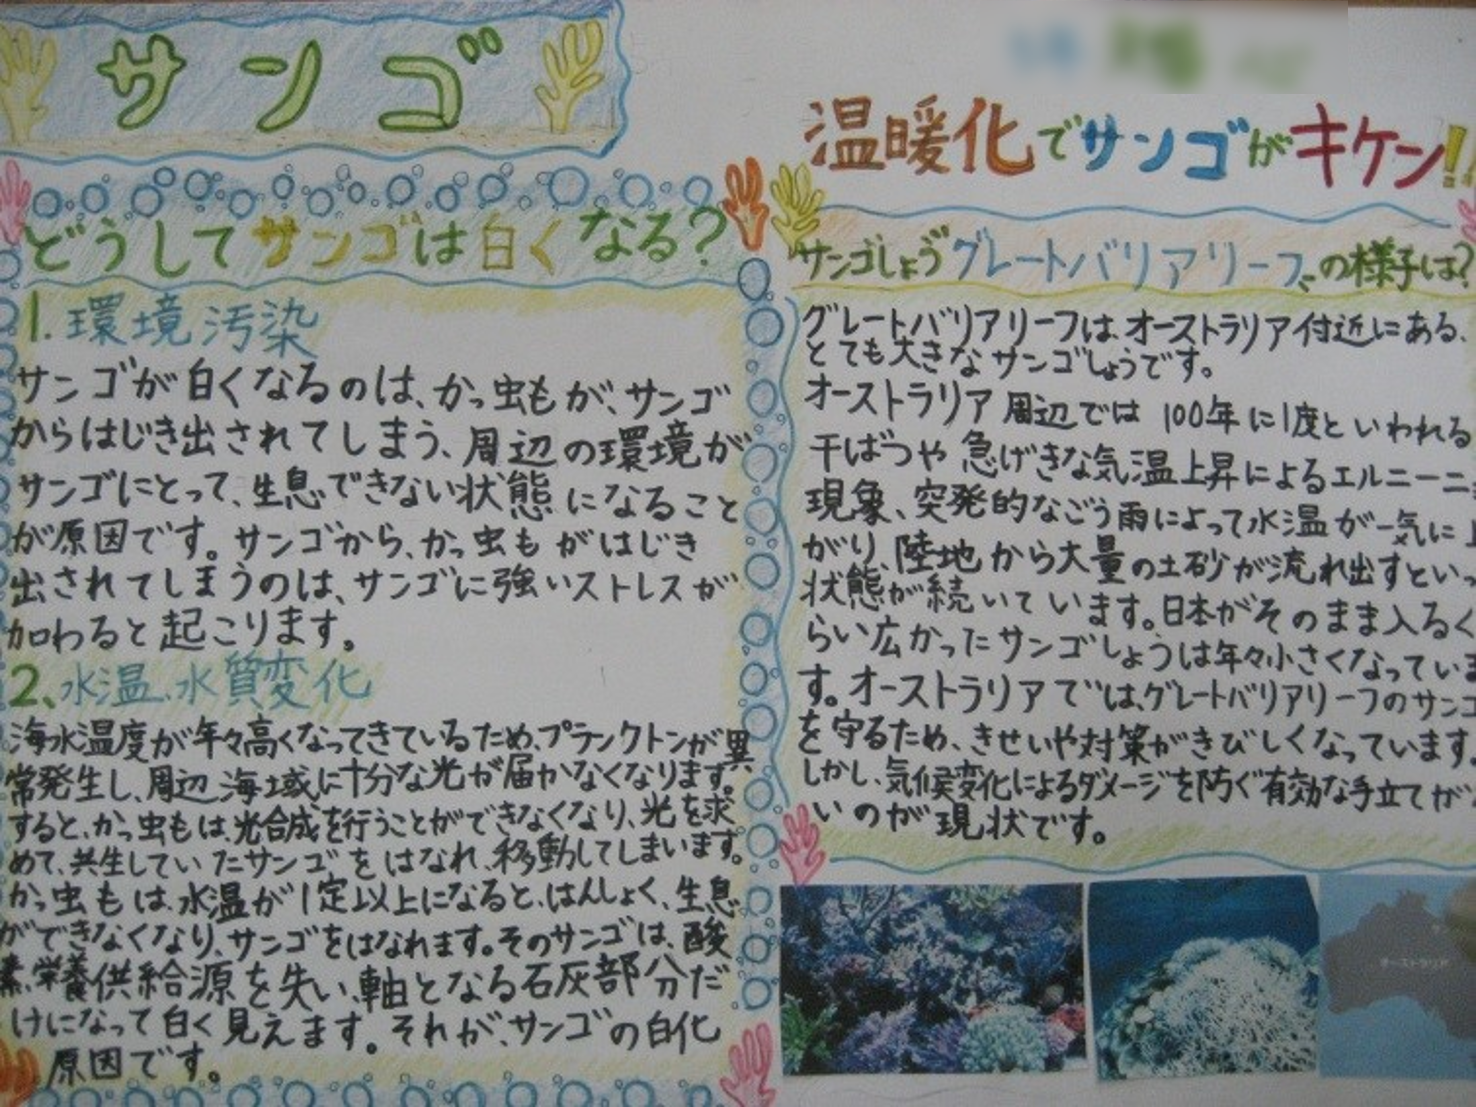 サンゴ
どうしてサンゴは白くなる?
1. 環境汚染
サンゴが白くなるのは、かっ虫もが、サンゴ
からはじき出されてしまう、周辺の環境が
サンゴにとって、生息できない状態になること
が原因です。サンゴから、かっ虫もがはじき
出されてしまうのは、サンゴに強いストレスが
加わると起こります。
2、水温、水質変化
海水温度が年々高くなってきているため、プランクトンが異
常発生し、周辺海域に十分な光が届かなくなります。
すると、かっ虫もは、光合成を行うことができなくなり、光を求
めて、共生していたサンゴをはなれ、移動してしまいます。
かっ虫もは、水温が1定以上になると、はんしょく、生息
ができなくなり、サンゴをはなれます。そのサンゴは、酸
素、栄養供給源を失い、軸となる石灰部分だ
けになって白く見えます。それが、サンゴの白化
原因です。
温暖化でサンゴがキケン!!
サンゴしょう グレートバリアリーフ、の様子は?
グレートバリアリーフは、オーストラリア付近にある、
とても大きなサンゴしょうです。
オーストラリア周辺では 100年に1度といわれる
干ばつや急げきな気温上昇によるエルニーニ
現象、突発的なごう雨によって水温が一気に上
がり、陸地から大量の土砂が流れ出すといっ
状態が続いています。日本がそのまま入るく
らい広かったサンゴしょうは年々小さくなっていま
す。オーストラリアでは、グレートバリアリーフのサンゴ
を守るため、きせいや対策がきびしくなっています。
しかし、気候変化によるダメージを防ぐ有効な手立てが
いのが現状です。
オーストラリア